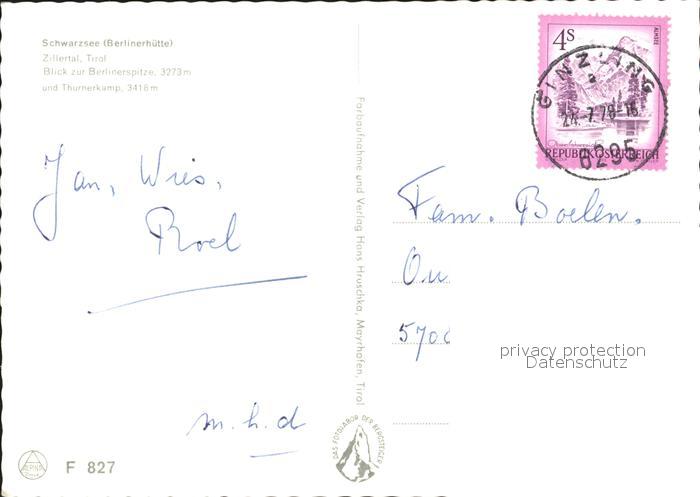 Schwarzsee (Berlinerhütte)
Zillertal, Tirol
Blick zur Berlinerspitze, 3273 m
und Thurnerkamp, 3418 m
Jan, Wies,
Roel
m.h.d
F 827
Farbaufnahme und Verlag Hans Hruschka, Mayrhofen, Tirol
DAS FOTOLABOR DER BERGSTEIGER
4S
ALMSEE
REPUBLIK ÖSTERREICH
GINZLING
a
24.-7.78-16
6295
Fam. Boelen.
On
570
privacy protection
Datenschutz